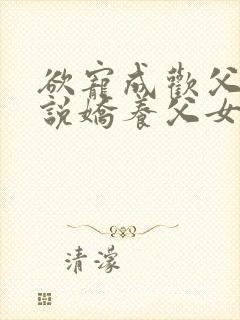 欲寵成歡父
說嬌養父女
清濛